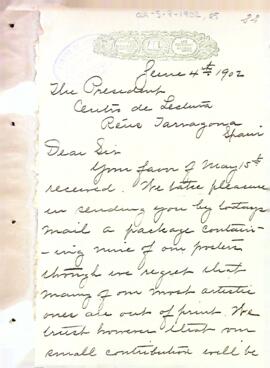 June 4th 1902
The President
Centro de Lectura
Réus Tarragona
Spain
Dear Sir
Your favor of May 15th
received. We take pleasure
in sending you by to-days
mail a package contain-
ing nine of our posters
though we regret that
many of our most artistic
ones are out of print. We
trust however that our
small contribution will be